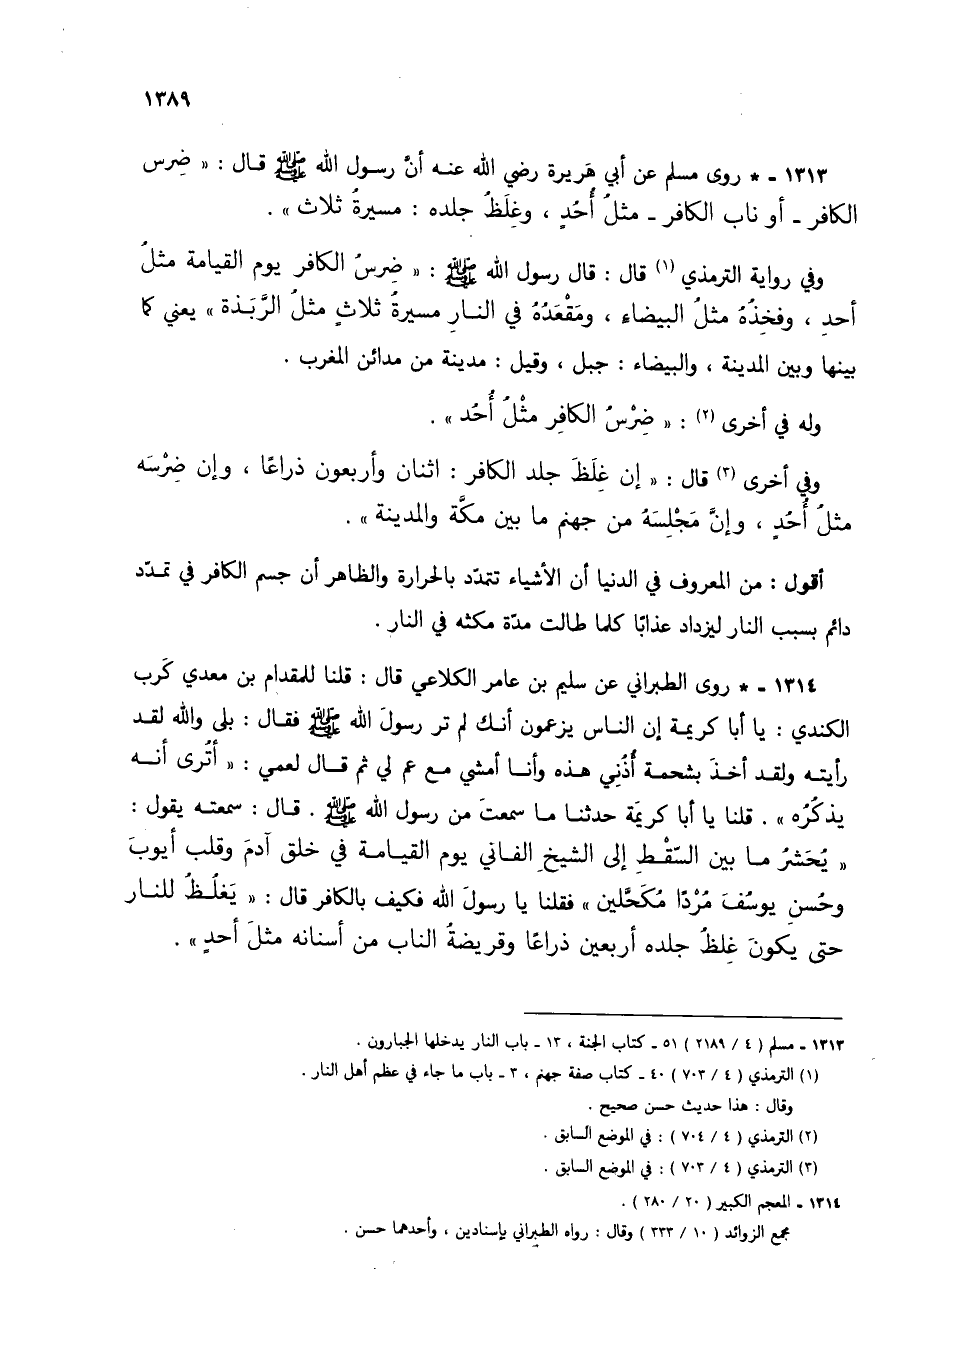 ١٣٨٩
١٣١٣ - * روى مسلم عن أبي هَريرة رضي الله عنه أنَّ رسول الله ﷺ قال : « ضِرس
الكافر - أو ناب الكافر - مثلُ أُحُدٍ ، وغِلَظُ جلده : مسيرةُ ثلاث » .
وفي رواية الترمذي (١) قال : قال رسول الله ﷺ : « ضِرسُ الكافر يوم القيامة مثلُ
أحدٍ ، وفخِذُهُ مثلُ البيضاء ، ومَقْعَدُهُ في النارِ مسيرةُ ثلاثٍ مثلُ الرَّبَذة » يعني كما
بينها وبين المدينة ، والبيضاء : جبل ، وقيل : مدينة من مدائن المغرب .
وله في أخرى (٢) : « ضِرْسُ الكافِر مثْلُ أُحُد » .
وفي أخرى (٣) قال : « إن غِلَظَ جلد الكافر : اثنان وأربعون ذراعًا ، وإن ضِرْسَه
مثلُ أُحُدٍ ، وإنَّ مَجْلِسَهُ من جهنم ما بين مكَّة والمدينة » .
أقول : من المعروف في الدنيا أن الأشياء تتمدّد بالحرارة والظاهر أن جسم الكافر في تمدّد
دائم بسبب النار ليزداد عذابًا كلما طالت مدّة مكثه في النار .
١٣١٤ - * روى الطبراني عن سليم بن عامر الكلاعي قال : قلنا للمقدام بن معدي كَرب
الكندي : يا أبا كريمة إن الناس يزعمون أنك لم تر رسولَ الله ﷺ فقال : بلى والله لقد
رأيته ولقد أخذَ بشحمة أُذُنِي هذه وأنا أمشي مع عم لي ثم قال لعمي : « أتُرى أنه
يذكُرُه » . قلنا يا أبا كريمَة حدثنا ما سمعتَ من رسول الله ﷺ . قال : سمعته يقول :
« يُحَشرُ ما بين السّقْط إلى الشيخِ الفاني يوم القيامة في خلق آدمَ وقلب أيوبَ
وحُسنِ يوسُفَ مُرْدًا مُكَحَّلين » فقلنا يا رسولَ الله فكيف بالكافر قال : « يَغلُظُ للنار
حتى يكونَ غِلظُ جلده أربعين ذراعًا وقريضةُ الناب من أسنانه مثلَ أحدٍ » .
١٣١٣ - مسلم ( ٤ / ٢١٨٩ ) ٥١ - كتاب الجنة ، ١٣ - باب النار يدخلها الجبارون .
(١) الترمذي ( ٤ / ٧٠٣ ) ٤٠ - كتاب صفة جهنم ، ٣ - باب ما جاء في عظم أهل النار .
وقال : هذا حديث حسن صحيح .
(٢) الترمذي ( ٤ / ٧٠٤ ) : في الموضع السابق .
(٣) الترمذي ( ٤ / ٧٠٣ ) : في الموضع السابق .
١٣١٤ - المعجم الكبير ( ٢٠ / ٢٨٠ ) .
مجمع الزوائد ( ١٠ / ٣٣٣ ) وقال : رواه الطبراني بإسنادين ، وأحدهما حسن .